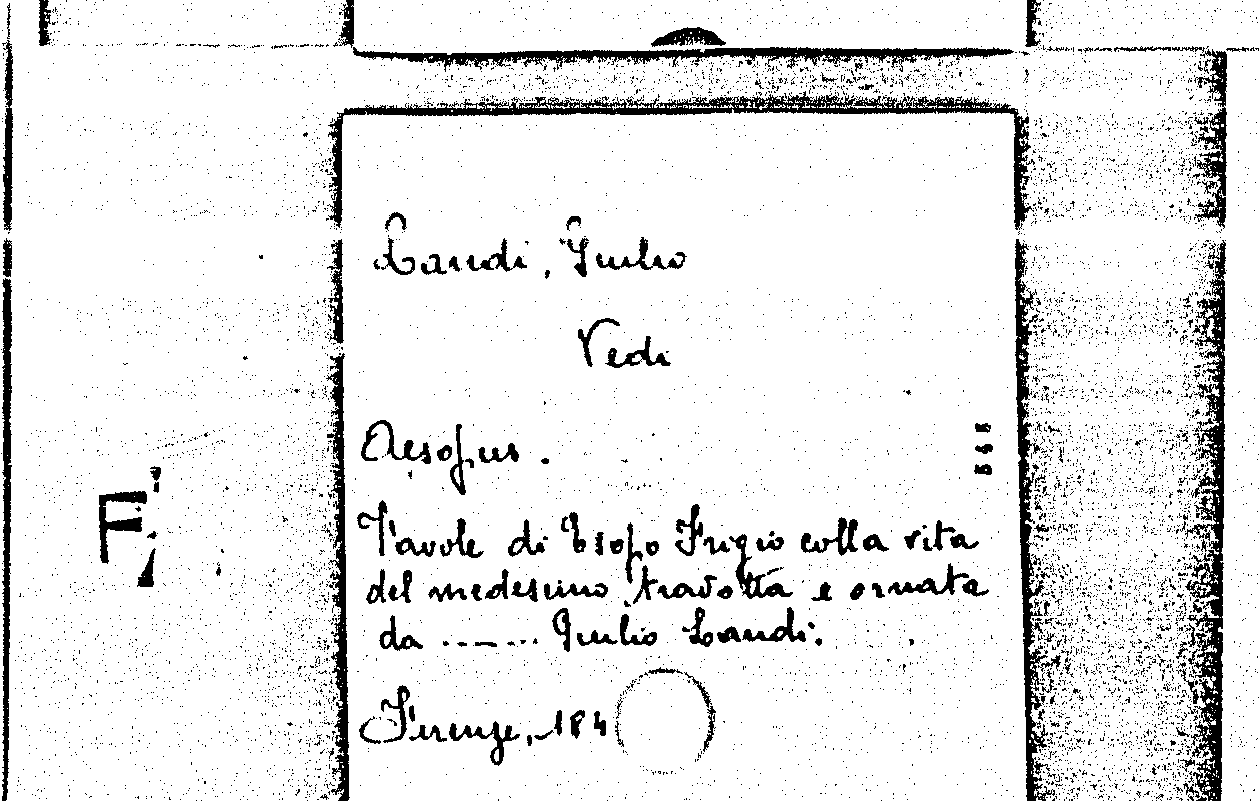 Landi, Giulio
Vedi
Aesopus.
545
Favole di Esopo Frigio colla vita
del medesimo, travolta e ornata
da ...... Giulio Landi.
Firenze, 184
F